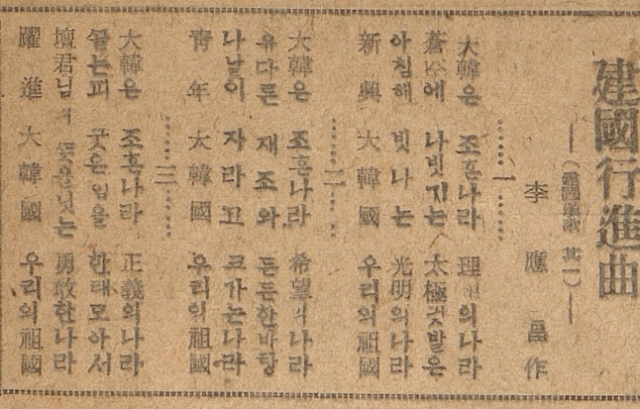 建國行進曲
—(國 歌 其一)—
李 應 昌 作
……一……
大韓은 조흔나라 理想의나라
蒼空에 나빗기는 太極긧발은
아침해 빗나는 光明의나라
新興大韓國 우리의祖國
……二……
大韓은 조흔나라 希望의나라
유다른 재조와 든든한바탕
나날이 자라고 크가는나라
靑年大韓國 우리의祖國
……三……
大韓은 조흔나라 正義의나라
끌는피 굿은 한태모아서
壇君님의 勇敢한나라
躍進大韓國 우리의祖國